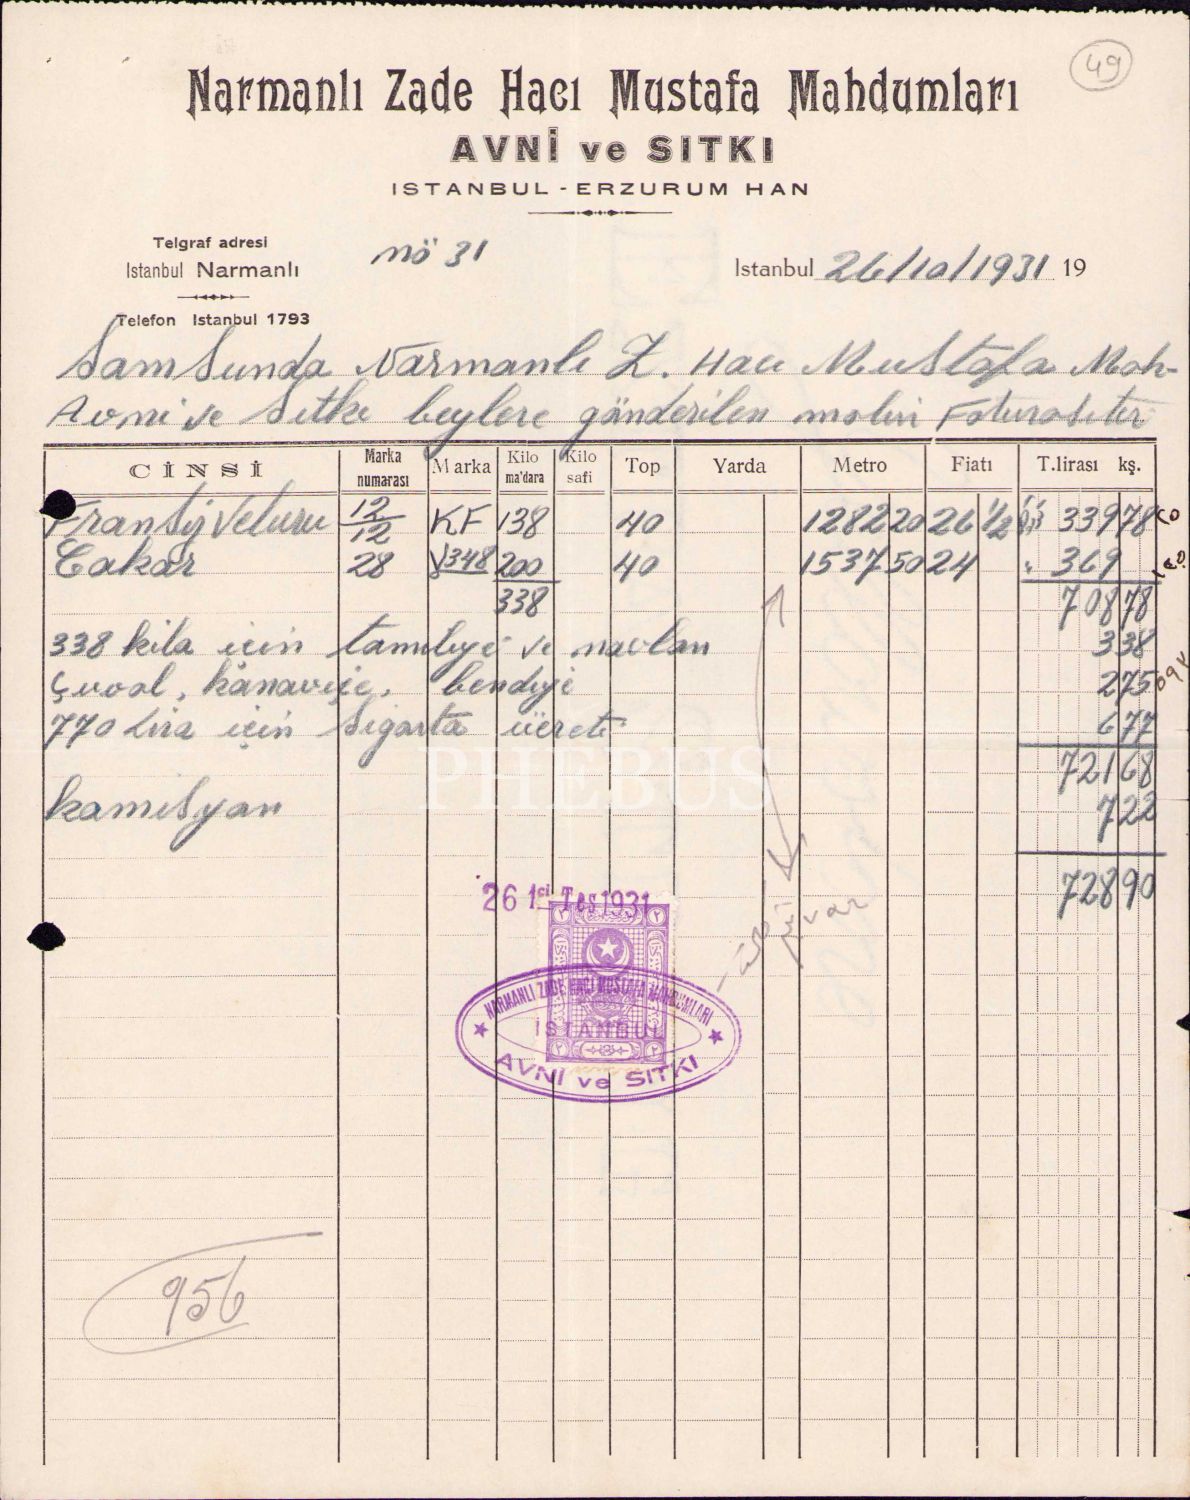 49
Narmanlı Zade Hacı Mustafa Mahdumları
AVNİ ve SITKI
ISTANBUL - ERZURUM HAN
Telgraf adresi
Istanbul Narmanlı
Telefon Istanbul 1793
nö 31
Istanbul 26/10/1931 19
Samsunda Narmanlı Z. Hacı Mustafa Mah-
Avni ve Sıtkı beylere gänderilen malın Faturasıtır
CİNSİ Marka numarası Marka Kilo ma'dara Kilo safi Top Yarda Metro Fiatı T.lirası kş.
Veluru 12/12 KF 138 40 1282 20 26 1/2 339 78
Cakar 28 348 200 40 1537 50 24 369
338 708 78
338 kila için ve navlun 3 38
Çuval, kanaviçe, bendiye 2 75
770 Lira için Sigarta ücreti 6 77
721 68
Kamisyan 7 22
728 90
PHEBUS
26 1ci Teş 1931
NARMANLI ZADE HACI MUSTAFA MAHDUMLARI
İSTANBUL
AVNİ ve SITKI
var
956